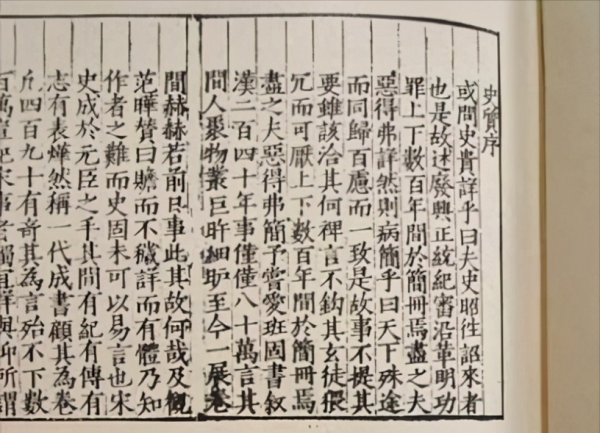 史質序
或問史貴詳乎曰夫史昭徃詔來者
也是故述廢興正統紀審沿革明功
罪上下數百年間於簡冊焉盡之夫
惡得弗詳然則病簡乎曰天下殊途
而同歸百慮而一致是故事不提其
要雖該洽其何裨言不鈎其玄徒猥
冗而可厭上下數百年間於簡冊焉
盡之夫惡得弗簡予嘗愛班固書叙
漢二百四十年事僅僅八十萬言其
間人聚物叢巨昈細昈至今一展卷
間赫赫若前日事此其故何哉及觀
范曄賛曰贍而不穢詳而有體乃知
作者之難而史固未可以易言也宋
史成於元臣之手其間有紀有傳有
志有表燁然稱一代成書顧其為卷
凢四百九十有奇其為言殆不下數
百萬豈紀宋事者獨宜詳與抑所謂